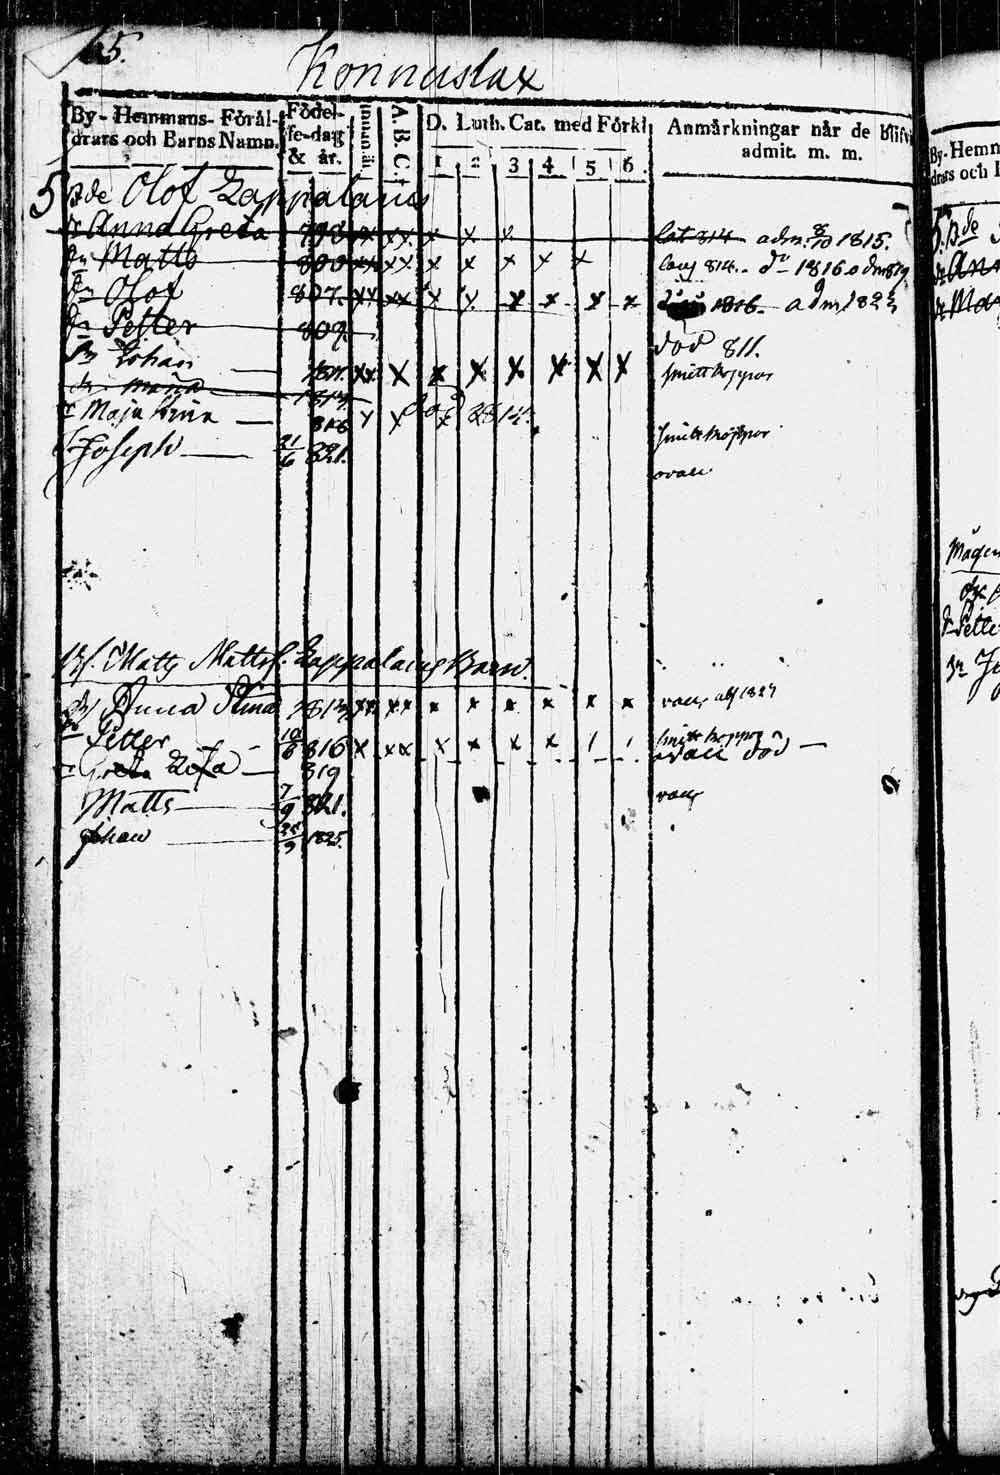 65.
Konnuslax
By- Hemmans- Föräl-
drars och Barns Namn.
Födel-
se-dag
& år.
Innan til.
A. B. C.
D. Luth. Cat. med Förkl.
1 2 3 4 5 6.
Anmärkningar när de blifv
admit. m. m.
5 Bde Olof Lappalains
Dr Anna Greta 798 xx xx x x x adm. 8/10 1815.
Sn Matts 800 xx xx x x x x x 814. do 1816
Sn Olof 807. xx xx x x x x x x 1816. adm 1823
Sn Petter 809. död 811.
Sn Johan xx x x x x x x x smittkoppor
Dr Maria 1814. död 1814.
Maja Stina 816 x x x smittkoppor
Joseph 21/6 821. vacc.
Matts Matts. Lappalains Barn.
Anna Stina 1813 xx xx x x x x x x vacc. 1827
Petter 10/6 816 x xx x x x x / / smittkoppor
Greta Lisa 819 vacc död
Matts 7/9 821. vacc
Johan 25/9 1825.
By- Hemm
drars och
5. Bde
Dr Ann
Mågen
Sn Pette
Sn Jo